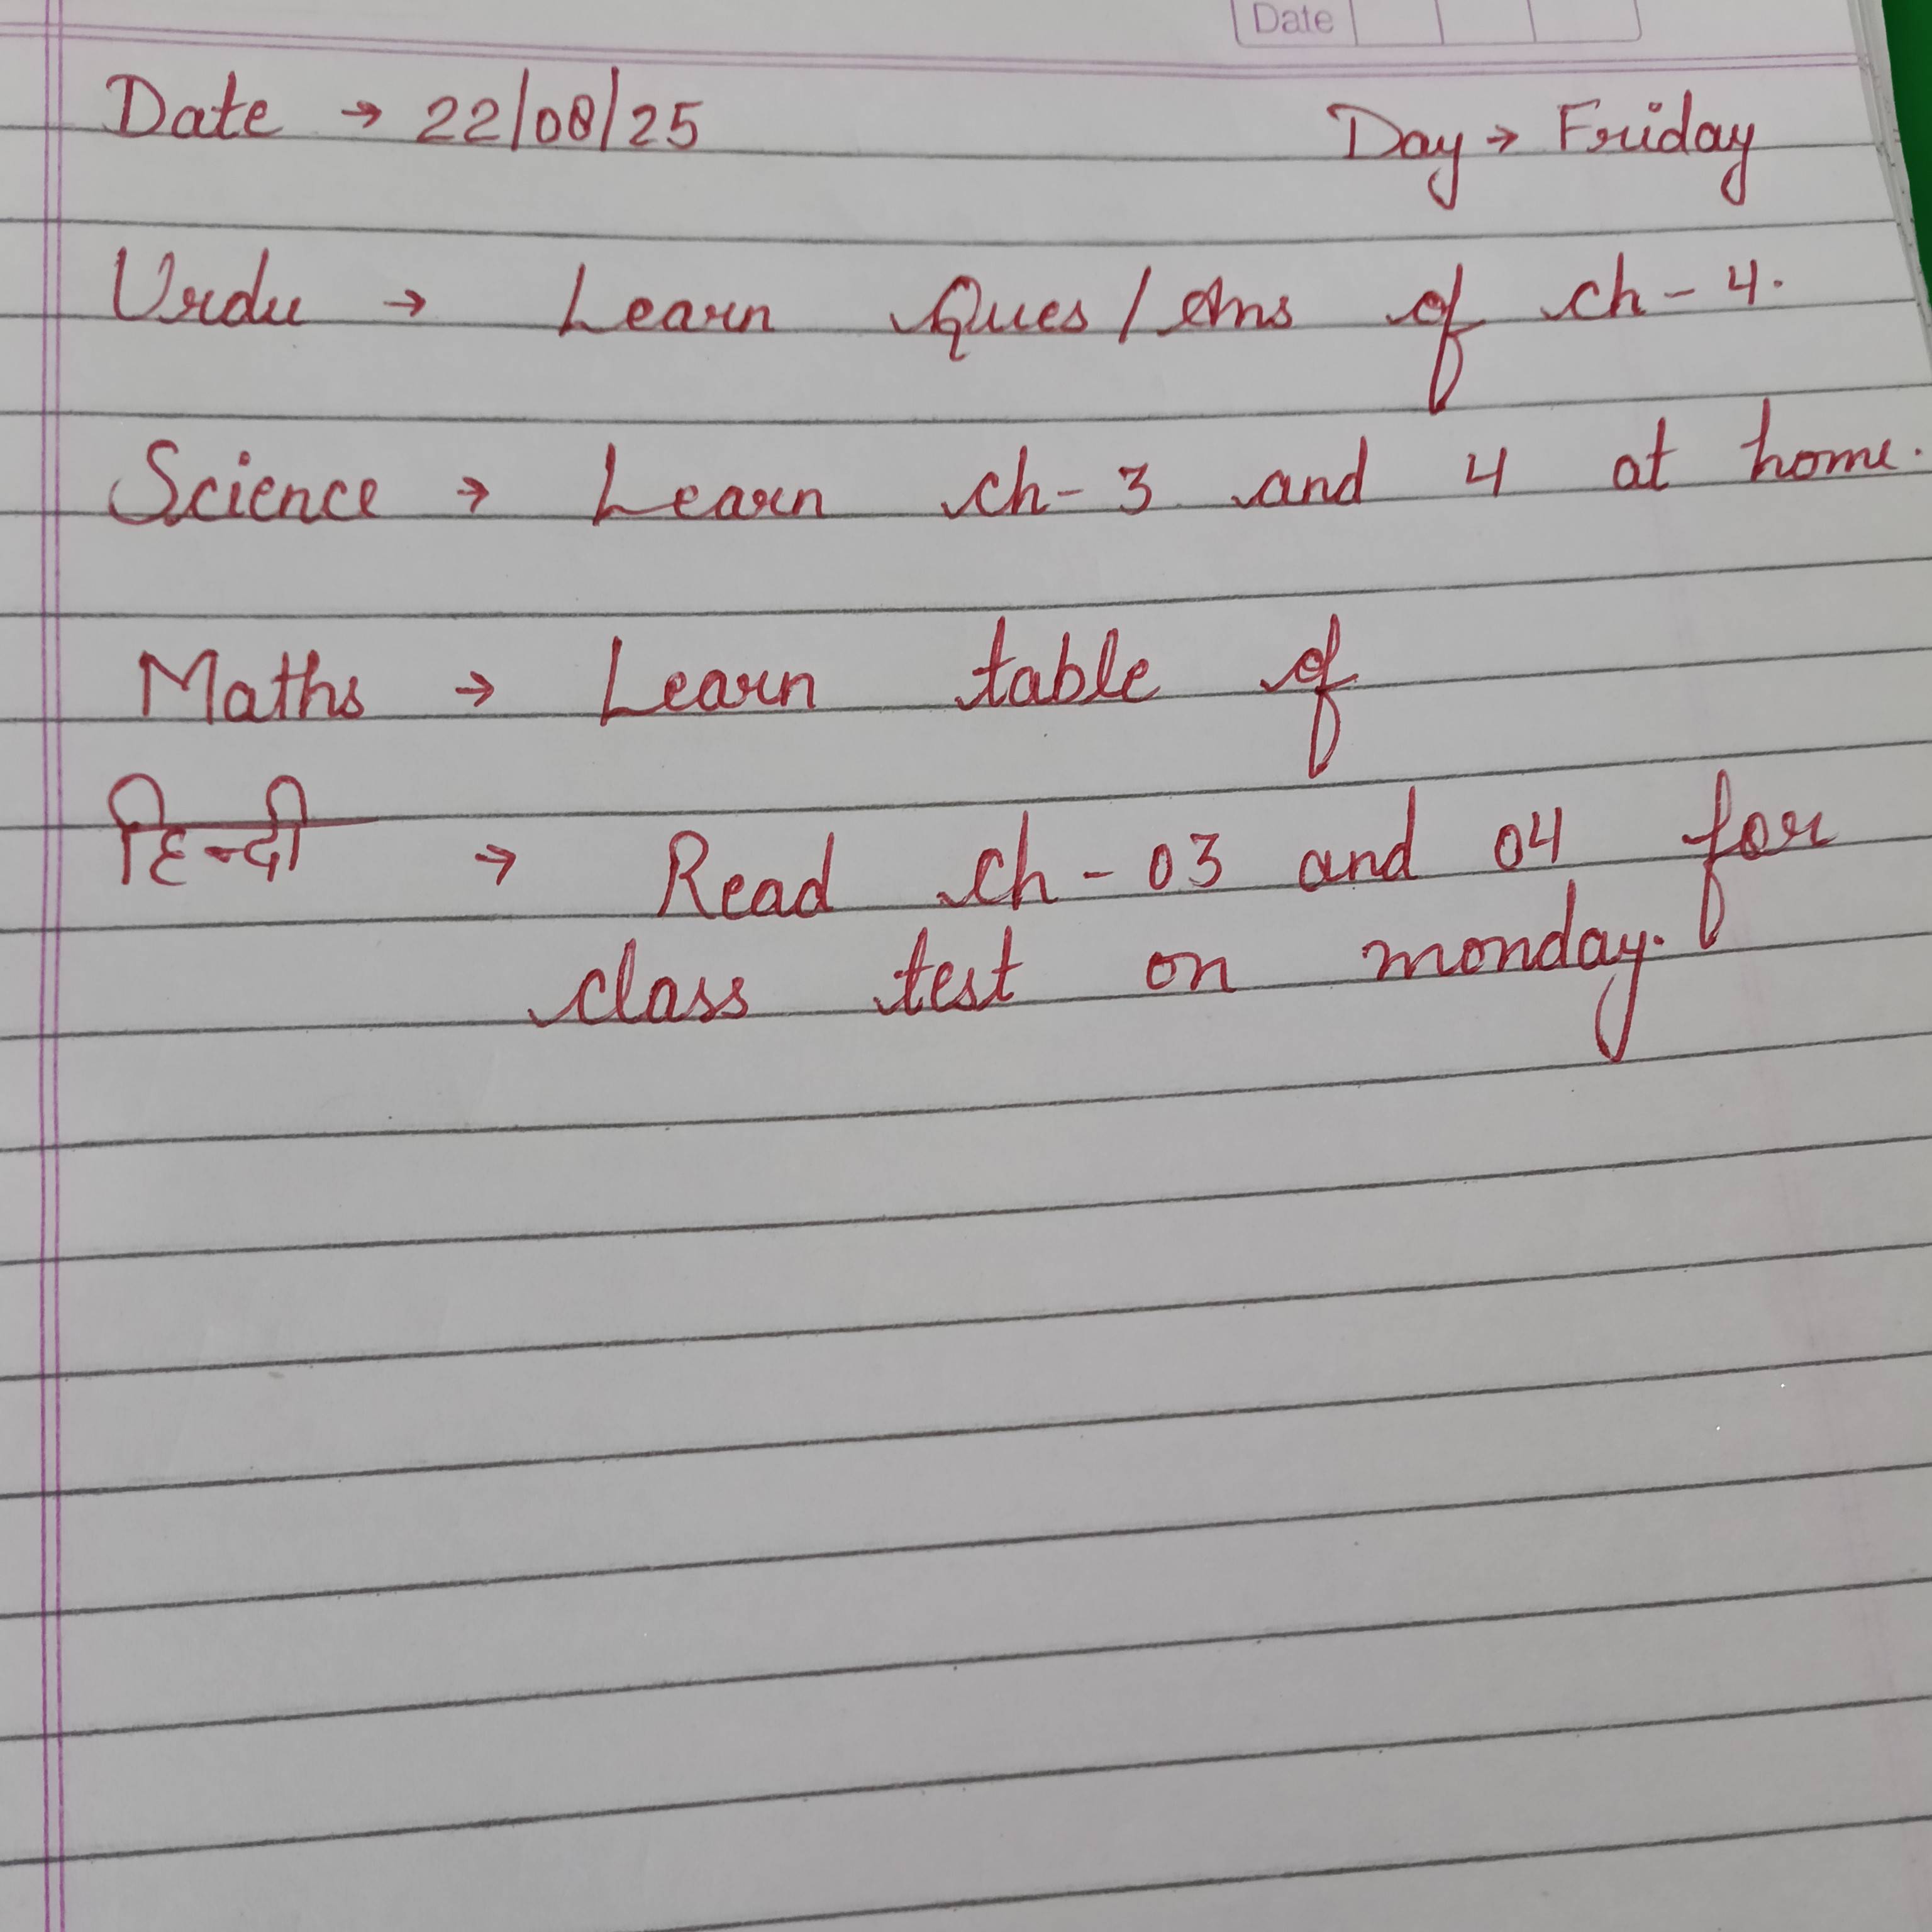 Date
Date → 22/08/25 Day → Friday
Urdu → Learn Ques/Ans of ch-4.
Science → Learn ch-3 and 4 at home.
Maths → Learn table of
हिन्दी → Read ch-03 and 04 for
class test on monday.